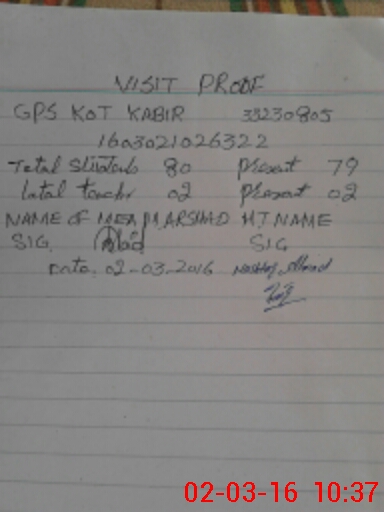 VISIT PROOF
GPS KOT KABIR 33230805
1603021026322
Total Students 80 present 79
Total teacher 02 present 02
NAME OF MEA M. ARSHAD H.T. NAME
SIG. SIG
Date. 02-03-2016 Ahmad
02-03-16 10:37